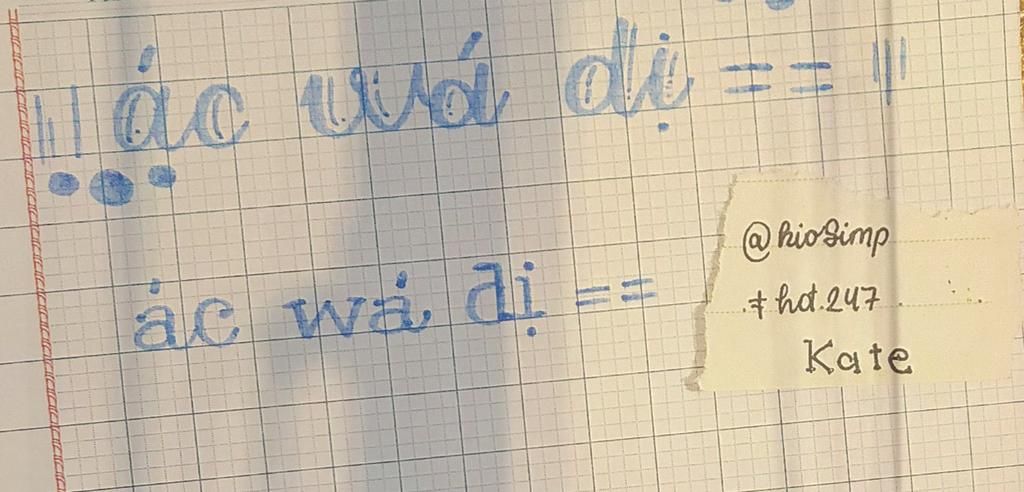 ác wá dị ==
ác wá dị ==
@hiosimp
#hd.247
Kate